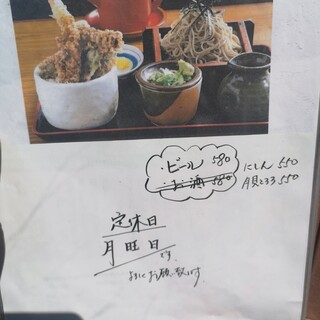 ・ビール 580
・お酒 580
にしん 550
貝とろろ 550
定休日
月曜日です
よろしくお願い致します